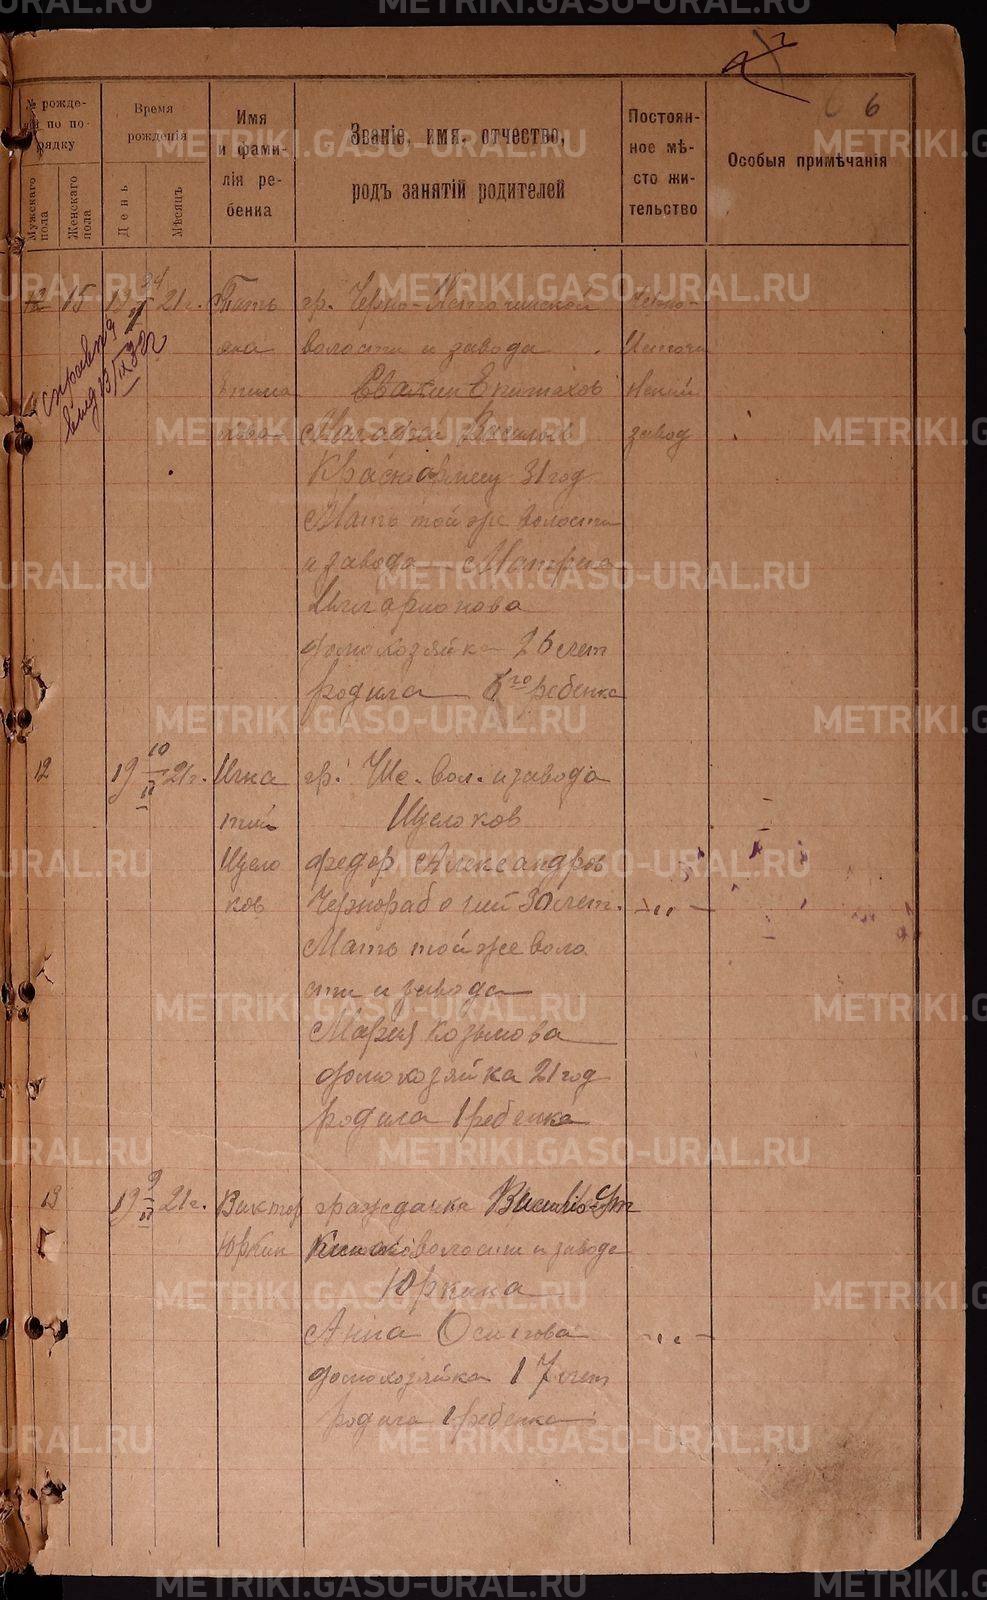 6
№ рожде-
ній по по-
рядку
Мужскаго
пола
Женскаго
пола
Время
рожденія
День
Мѣсяцъ
Имя
и фами-
лія ре-
бенка
Званіе, имя, отчество,
родъ занятій родителей
Постоян-
ное мѣ-
сто жи-
тельство
Особыя примѣчанія
12 15 19 24/II 21 г.
справка
выд 13/IX 32 г
Тать
яна
гр. Черно-Источинской
волости и завода
Евахов
Василов
Красноармеец 31 год
Мать той же волости
и завода Матрена
Илларионова
домохозяйка 26 лет
родила 5го ребенка
Черно-
Источи
нский
завод
12
19 10/II 21 г.
Игна
тий
Щело
ков
гр. Ч-Ис. вол. и завода
Щелоков
Федор Александров
Чернорабочий 30 лет.
Мать той же воло
сти и завода
Мария Козьмова
домохозяйка 21 год
родила 1 ребенка
- „ -
13
19 9/II 21 г.
Виктор
Юркин
гражданка
волости и завода
Юркина
Анна Осипова
домохозяйка 17 лет
родила 1 ребенка
- „ -
METRIKI.GASO-URAL.RU